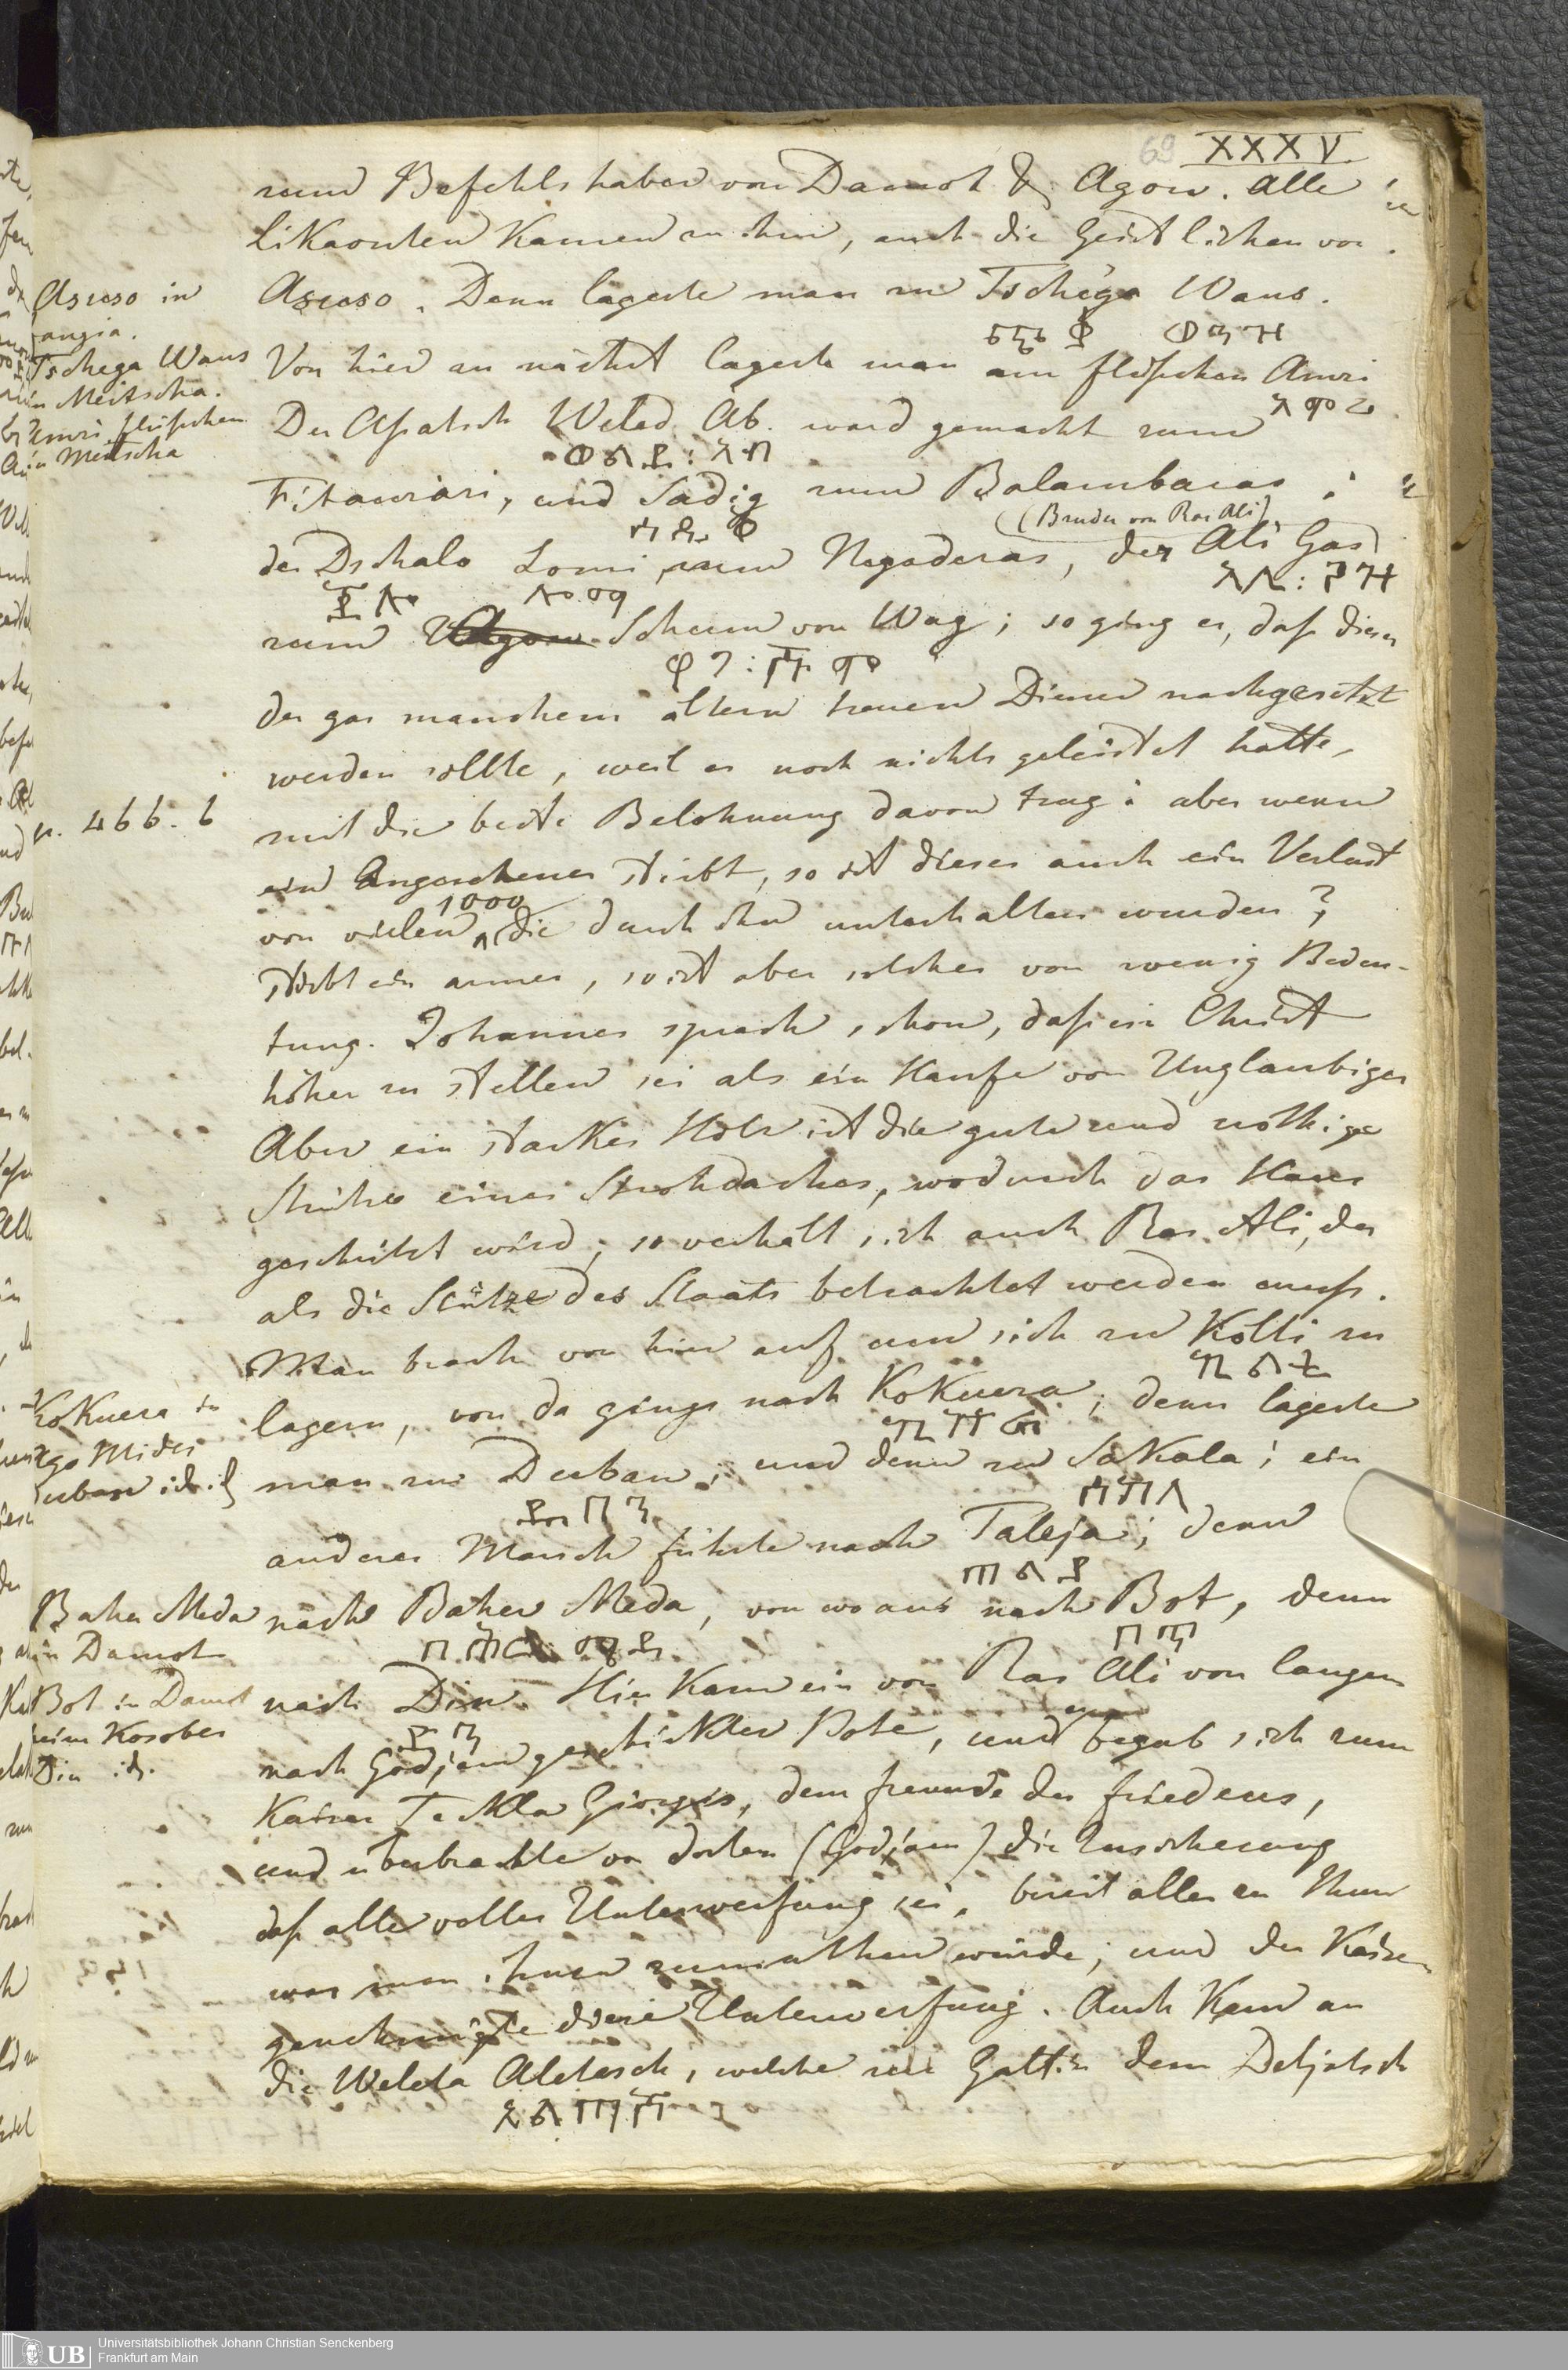 69 XXXV.
zum Befehlshaber von Damot & Agow. Alle
Likaonten kamen zu ihm, auch die Geistlichen von
Asuoso. Denn lagerte man zu Tschega Waus.
Von hier zu nächst lagerte man am flüßchen Amri
አምሪ
Der Asalech Weled Ab. ward gemacht zum
ወልደ፡አብ
Fitaurari, und Sadig zum Balambaras;
ሳዲቅ
(Bruder von Ras Ali)
der Dschalo Lomi zum Nagaderas, der Ali Gas
ጃሎ ሎሚ
አሊ፡ጋዝ
zum Schum von Wag; so ging es, daß dieser
ዋግ፡ሹም
der gar manchem ältern treuen Diener nachgesetzt
werden sollte, weil er noch nichts geleistet hatte,
mit die beste Belohnung davon trug; aber wenn
ein Angesehener stirbt, so ist dieses auch ein Verlust
von vielen 1000 die durch ihn unterhalten wurden?
stirbt ein armer, so ist aber solches von wenig Bedeu-
tung. Johannes sprach schon, daß ein Christ
höher zu stellen sei als ein Haufe von Unglaubigen
Aber ein starkes Holz ist die gute und nöthige
Stütze eines Strohdaches, wodurch das Haus
geschützt wird; so verhält sich auch Ras Ali, der
als die Stütze des Staats betrachtet werden muß.
Man brach von hier auf um sich zu Kolti zu
ኰልቲ
lagern, von da gings nach Kokuera; denn lagerte
man zu Durban; und denn zu Sakala; ein
ዱርባን
ሳካላ
anderer Marsch führte nach Taleja; denn
ጣልያ
nach Baher Meda, von wo aus nach Bot, denn
ባሕር ሜዳ
nach Din. Hier kam ein von Ras Ali von langem
ዲን
nach Godjam geschickter Bote, und begab sich zum
Kaiser Teckla Giorgis, dem freunde des friedens,
und überbrachte von dorten (Godjam) die Zusicherung
daß alle voller Unterwerfung sei, bereit alles zu thun
was man ihnen zumuthen würde; und der Kaiser
genehmigte diese Unterwerfung. Auch kam an
die Weleta Aletasch, welche als Gattin dem Detjatsch
Asuoso in
Tschega Waus
in Meitscha.
Amri flüßchen
in Meitscha
p. 466. b
Kokuera in
Ago Mider
Durban id.
Baher Meda
in Damot
Bot in Damot
beim Kosober
Din id.
UB Universitätsbibliothek Johann Christian Senckenberg
Frankfurt am Main